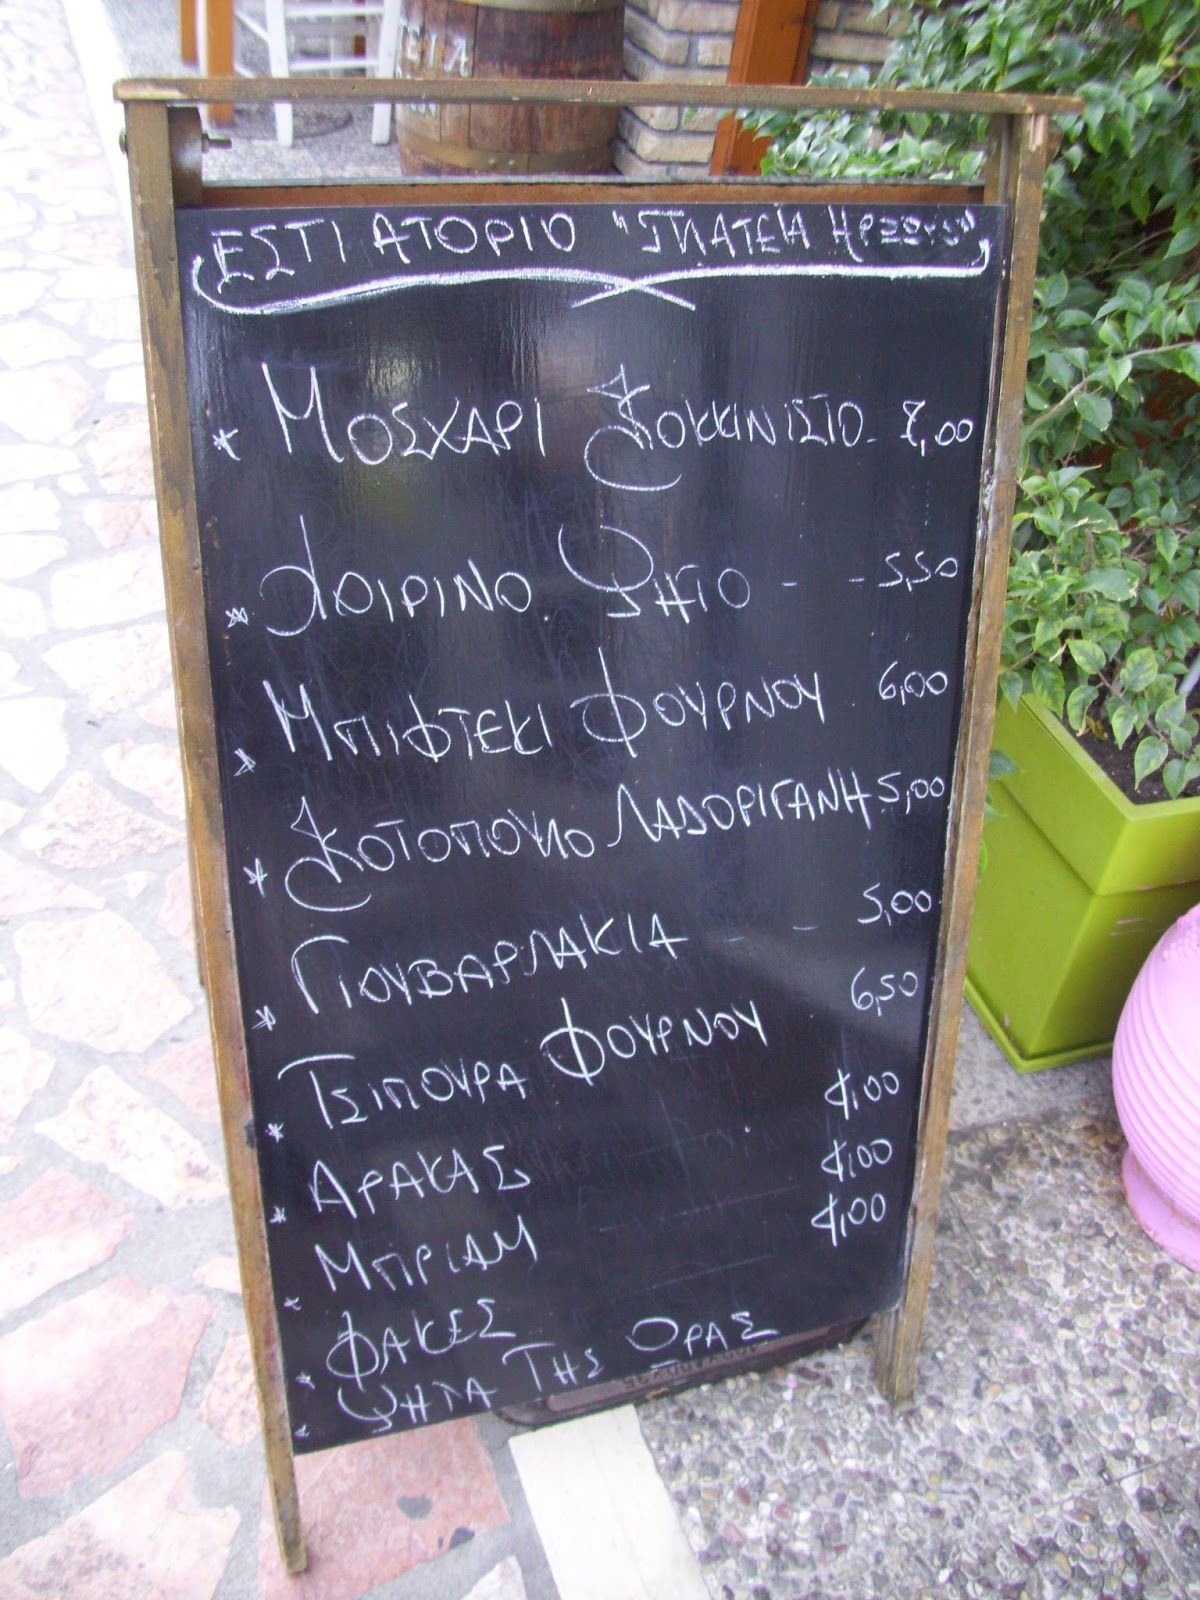 ΕΣΤΙΑΤΟΡΙΟ "ΠΛΑΤΕΙΑ ΗΡΩΩΝ"
* ΜΟΣΧΑΡΙ ΚΟΚΚΙΝΙΣΤΟ - 7,00
* ΧΟΙΡΙΝΟ ΨΗΤΟ - - 5,50
* ΜΠΙΦΤΕΚΙ ΦΟΥΡΝΟΥ 6,00
* ΚΟΤΟΠΟΥΛΟ ΛΑΔΟΡΙΓΑΝΗ 5,00
* ΓΙΟΥΒΑΡΛΑΚΙΑ - - 5,00
* ΤΣΙΠΟΥΡΑ ΦΟΥΡΝΟΥ 6,50
* ΑΡΑΚΑΣ 4,00
* ΜΠΡΙΑΜ 4,00
* ΦΑΚΕΣ 4,00
* ΨΗΤΑ ΤΗΣ ΩΡΑΣ